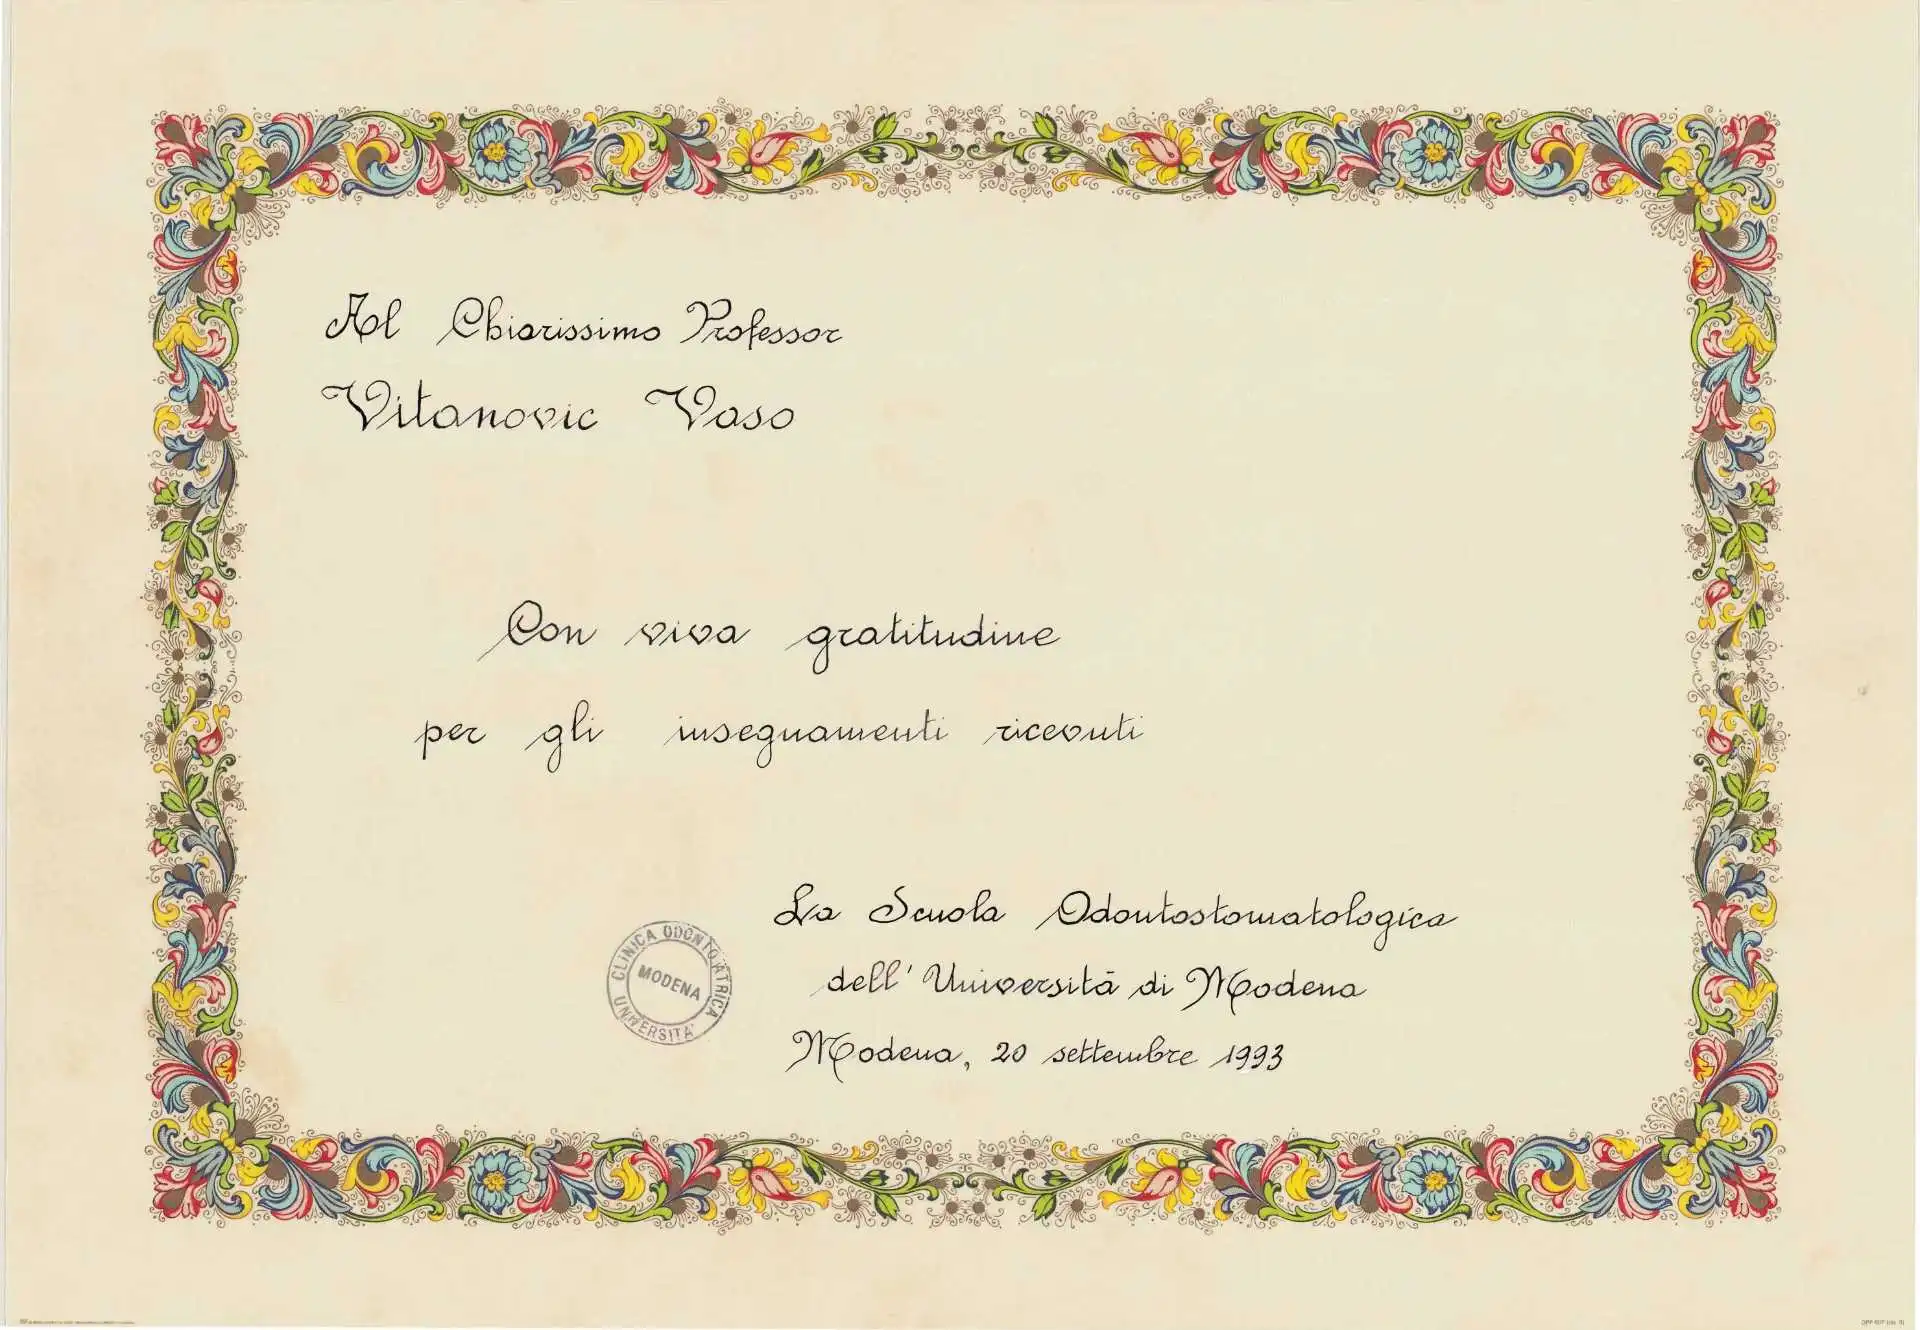 Al Chiarissimo Professor
Vitanovic Vaso
Con viva gratitudine
per gli insegnamenti ricevuti
La Scuola Odontostomatologica
dell'Università di Modena
Modena, 20 settembre 1993
CLINICA ODONTOIATRICA
MODENA
UNIVERSITA'